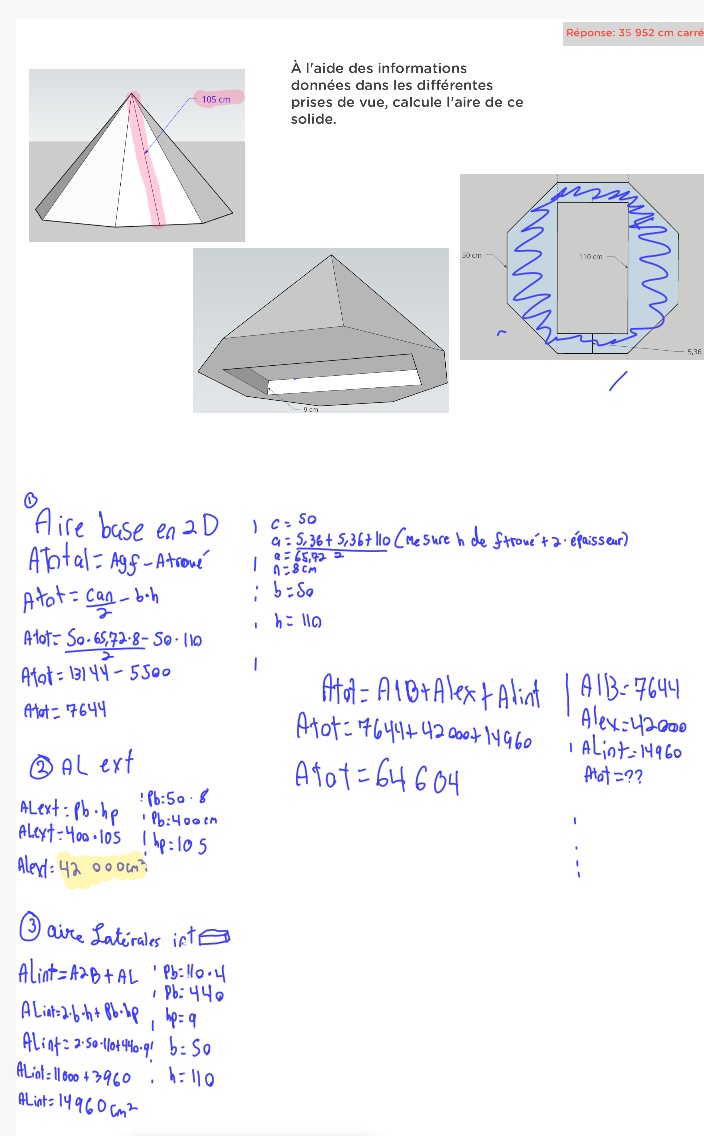 Réponse: 35 952 cm carré
À l'aide des informations
données dans les différentes
prises de vue, calcule l'aire de ce
solide.
105 cm
50 cm
110 cm
5,36
9 cm
①
Aire base en 2D
ATotal = Agf - Atroué
Atot = can/2 - b·h
Atot = 50·65,72·8/2 - 50·110
Atot = 13144 - 5500
Atot = 7644
c = 50
a = 5,36 + 5,36 + 110/2 (mesure h de ftroué + 2·épaisseur)
a = 65,72
n = 8cm
b = 50
h = 110
② AL ext
ALext = Pb·hp
ALext = 400·105
ALext = 42 000cm²
Pb: 50·8
Pb: 400cm
hp = 105
③ aire Latérales int
ALint = A2B + AL
ALint = 2·b·h + Pb·hp
ALint = 2·50·110 + 440·9
ALint = 11000 + 3960
ALint = 14960cm²
Pb = 110·4
Pb = 440
hp = 9
b = 50
h = 110
Atot = A1B + Alex + Alint
Atot = 7644 + 42000 + 14960
Atot = 64604
A1B = 7644
Alex = 42000
ALint = 14960
Atot = ??